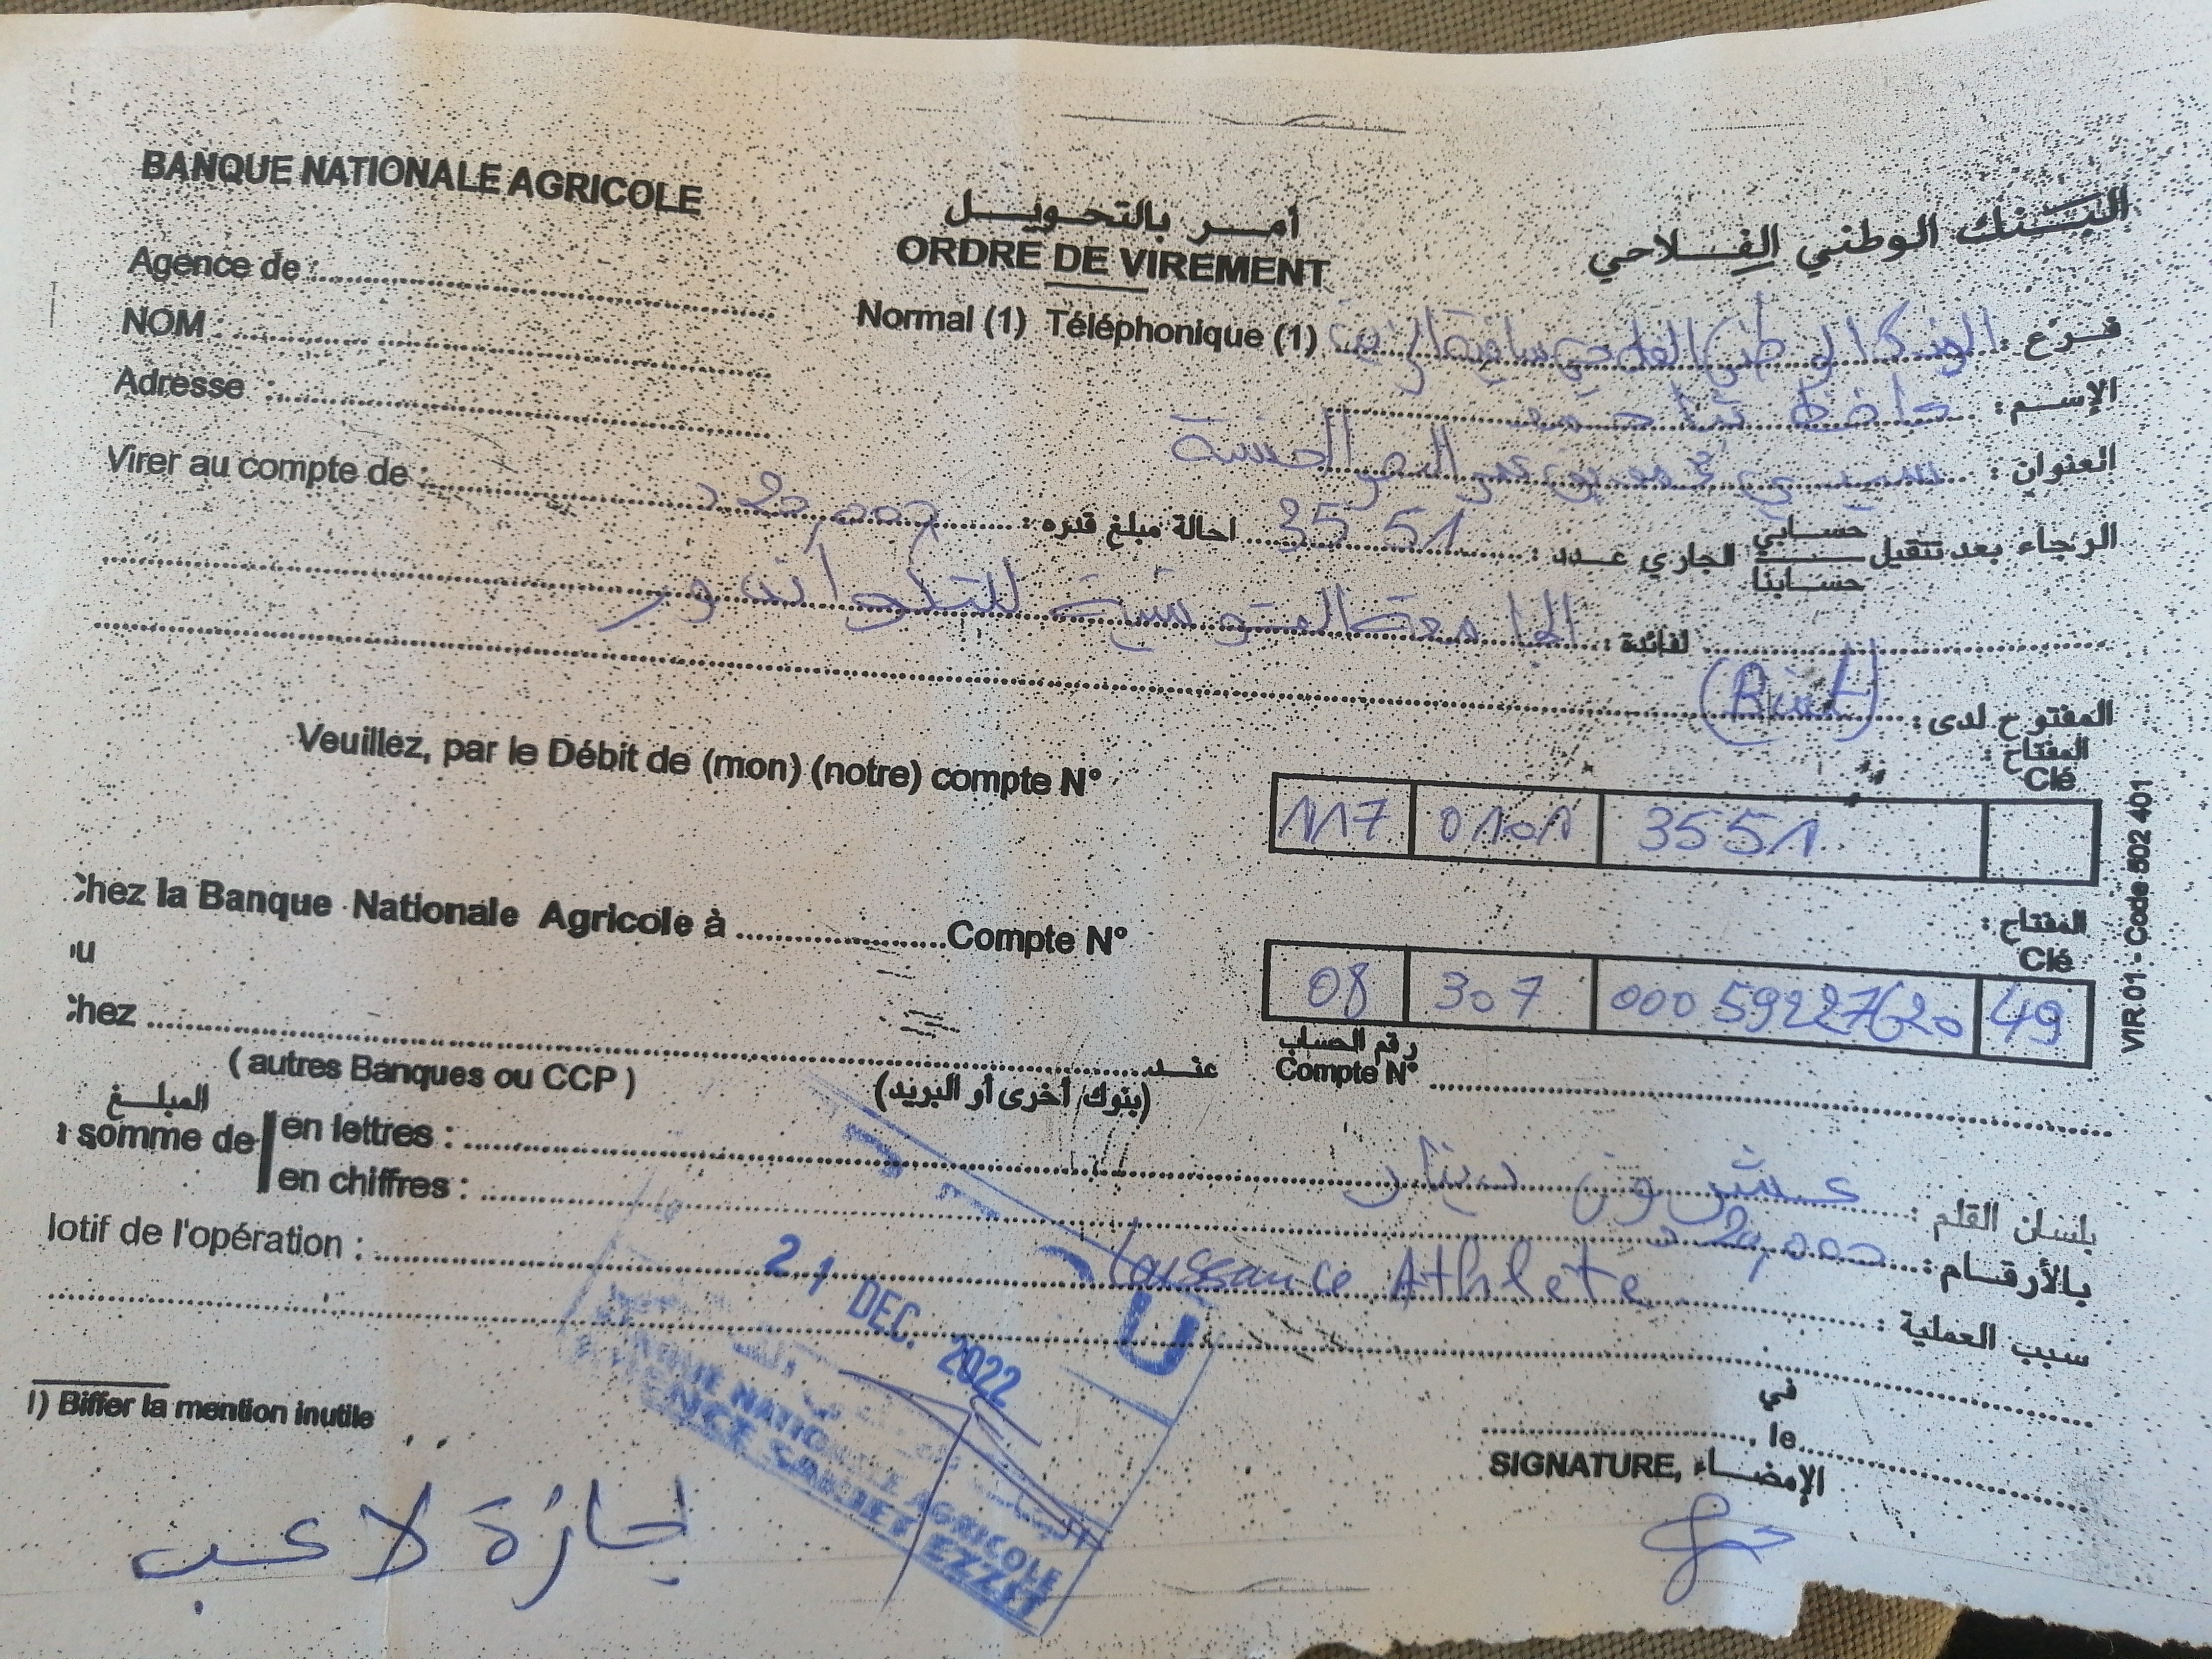 BANQUE NATIONALE AGRICOLE
أمر بالتحويل
البنك الوطني الفلاحي
ORDRE DE VIREMENT
Agence de :
Normal (1) Téléphonique (1)
فرع :
NOM :
الإسم :
Adresse :
العنوان :
Virer au compte de :
الرجاء بعد تنقيل حسابي حسابنا الجاري عدد : 3551 احالة مبلغ قدره : 20,000 د
لفائدة : الجامعة التونسية للتايكواندو
المفتوح لدى : (Biat)
Veuillez, par le Débit de (mon) (notre) compte N°
المفتاح :
Clé
117 0101 3551
Chez la Banque Nationale Agricole à Compte N°
المفتاح :
Clé
08 307 00059227620 49
ou
Chez
عند
رقم الحساب
Compte N°
( autres Banques ou CCP )
(بنوك أخرى أو البريد)
المبلغ
somme de
en lettres :
بلسان القلم : عشرون دينار
en chiffres :
بالأرقام : 20,000 د
Motif de l'opération :
سبب العملية : Athlete
21 DEC. 2022
BANQUE NATIONALE AGRICOLE
AGENCE SAKIET EZZIT
في
, le
1) Biffer la mention inutile
SIGNATURE, الإمضاء
إجازة لاعب
VIR 01 - Code 502 401